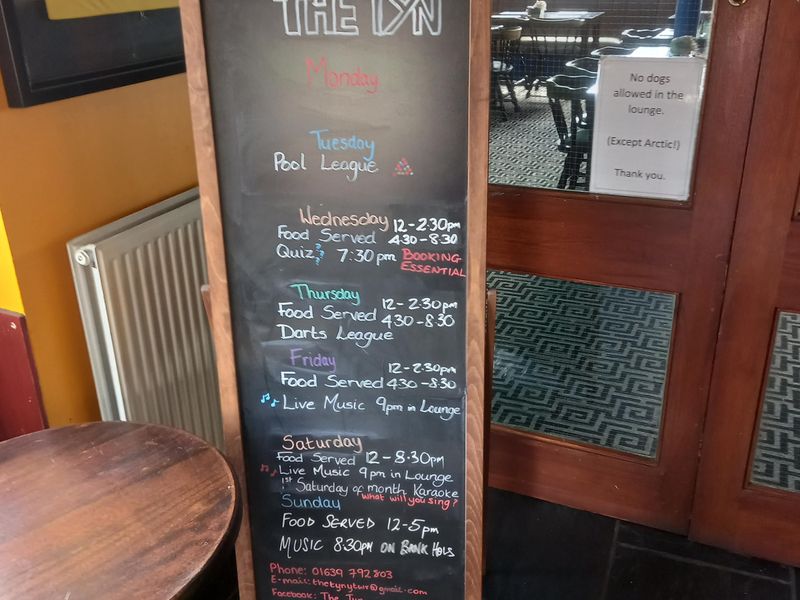 THE TYN
Monday
Tuesday
Pool League
Wednesday 12-2.30pm
Food Served 4.30-8.30
Quiz 7:30pm BOOKING
ESSENTIAL
Thursday
12-2.30pm
Food Served 4.30-8.30
Darts League
Friday
12-2.30pm
Food Served 4.30-8.30
Live Music 9pm in Lounge
Saturday
Food Served 12-8.30pm
Live Music 9pm in Lounge
1st Saturday of month Karaoke
what will you sing?
Sunday
FOOD SERVED 12-5pm
MUSIC 8.30pm ON BANK HOLS
Phone: 01639 792803
E-mail: thetynytwr@gmail.com
Facebook: The Tyn
No dogs
allowed in the
lounge.
(Except Arctic!)
Thank you.